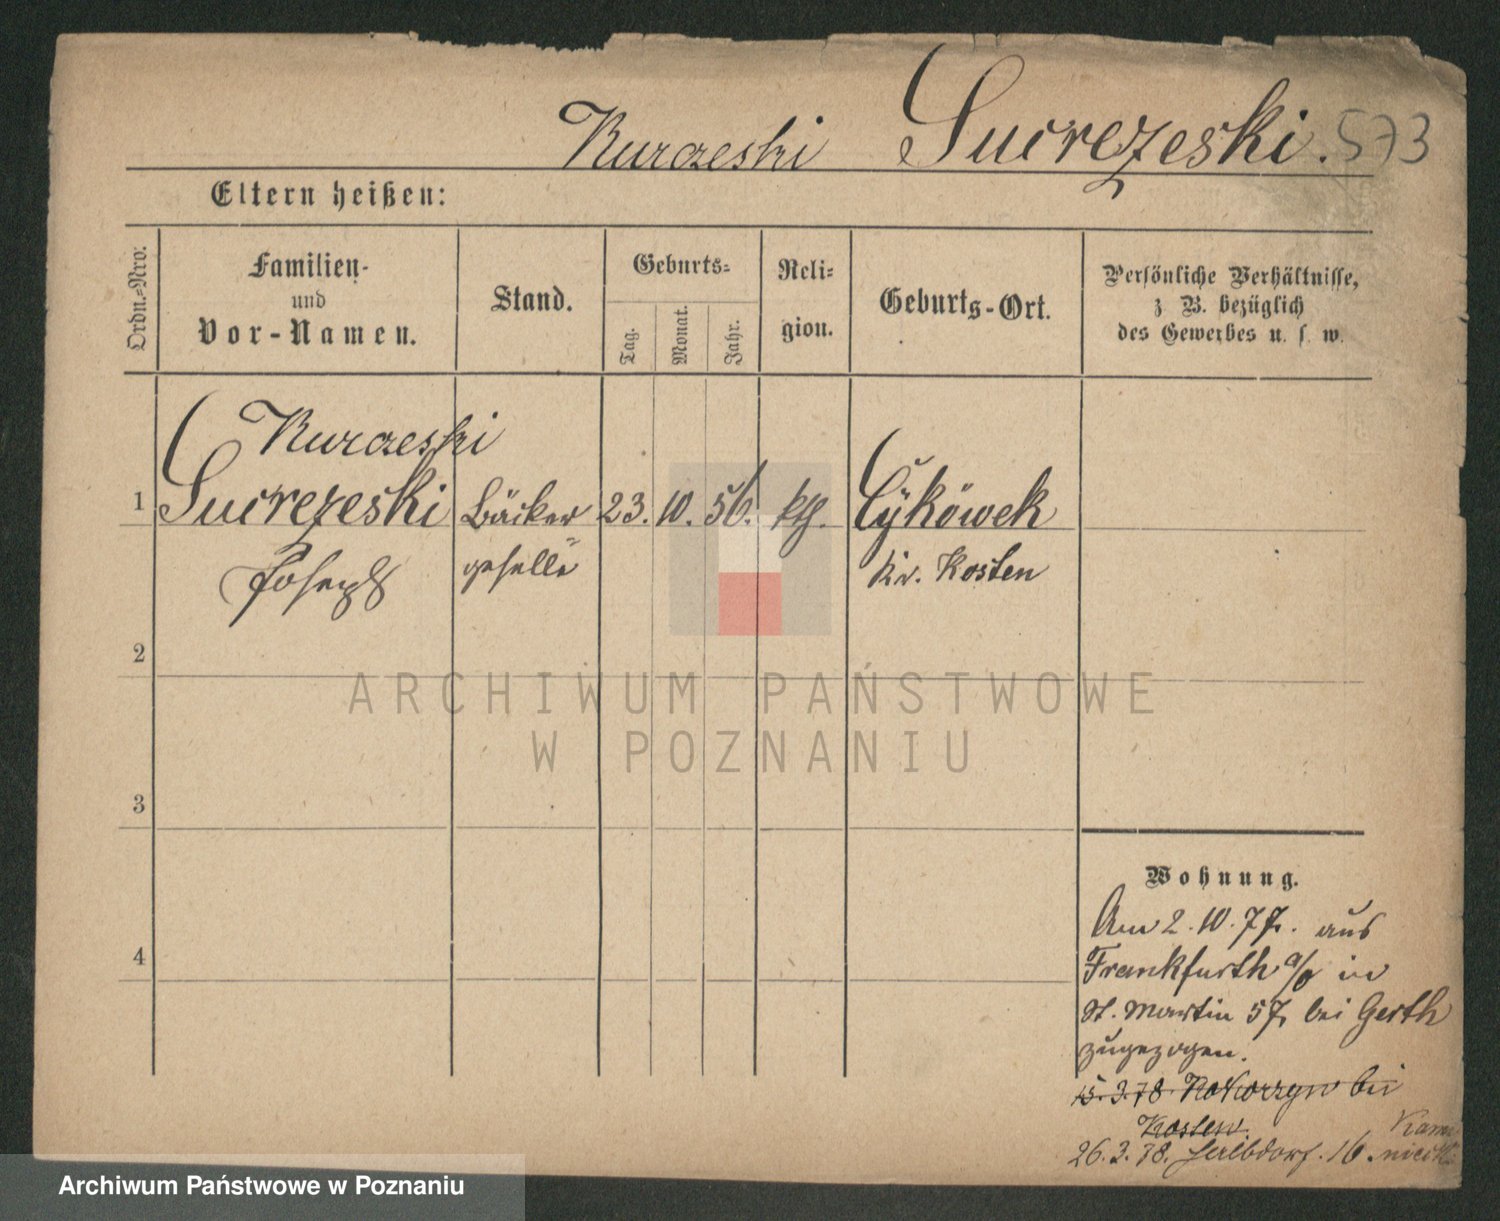 Kurczeski Sucrezeski. 573
Eltern heißen:
Ordn.-Nro:
Familien-
und
Vor-Namen.
Stand.
Geburts-
Tag.
Monat.
Jahr.
Reli-
gion.
Geburts-Ort.
Persönliche Verhältnisse,
z B. bezüglich
des Gewerbes u. s. w.
Kurczeski
1 Sucrezeski Bäcker 23. 10. 56. kth. Cykówek
Joseph geselle Kr. Kosten
2
3
4
Wohnung.
Am 2. 10. 77. aus
Frankfurth a/o in
St. Martin 57, bei Gerth
zugezogen.
15. 3. 78. bei
Kosten.
26. 3. 78. Halbdorf. 16.
ARCHIWUM PAŃSTWOWE
W POZNANIU
Archiwum Państwowe w Poznaniu